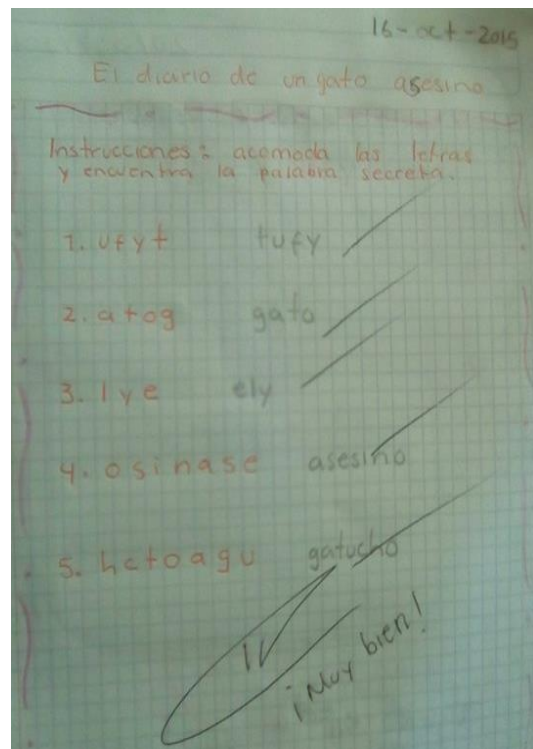 16-oct-2015
El diario de un gato asesino
Instrucciones: acomoda las letras
y encuentra la palabra secreta.
1. ufyt tufy
2. atog gato
3. lye ely
4. osinase asesino
5. hctoagu gatucho
¡Muy bien!